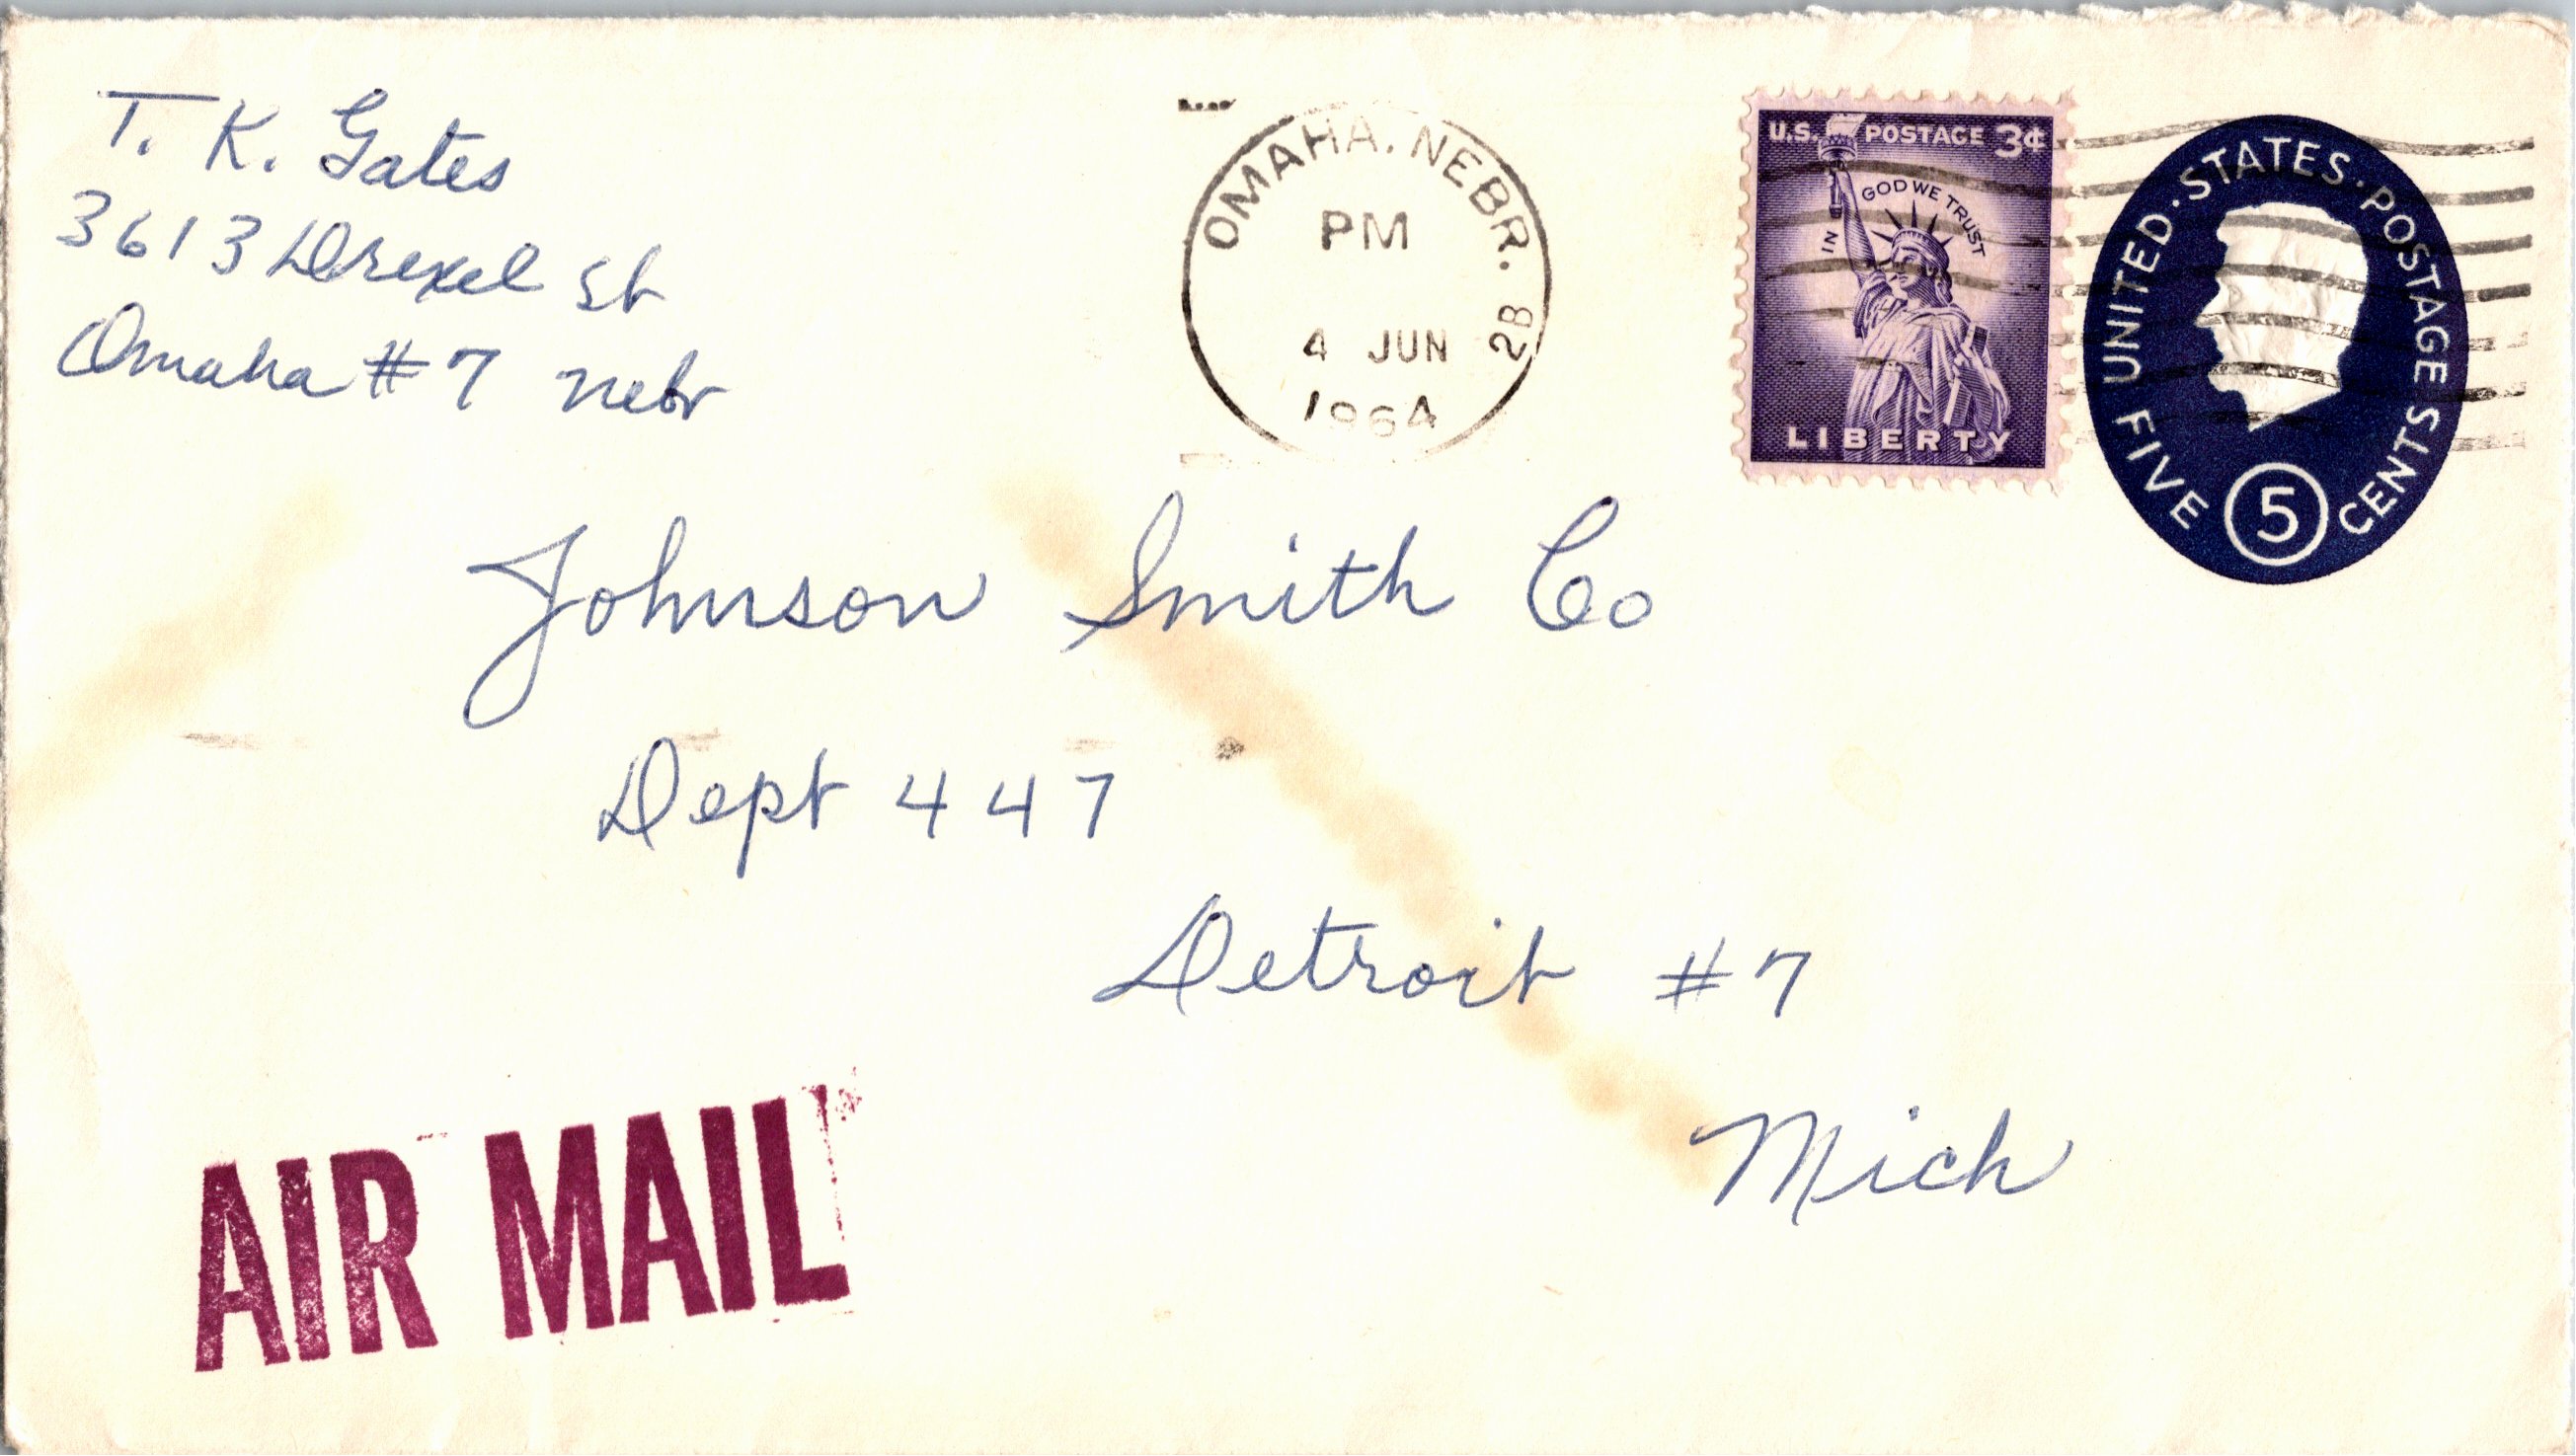 T. K. Gates
3613 Drexel St
Omaha #7 Nebr
OMAHA, NEBR.
PM
4 JUN
1964
2B
U.S. POSTAGE 3¢
IN GOD WE TRUST
LIBERTY
UNITED · STATES · POSTAGE
FIVE 5 CENTS
Johnson Smith Co
Dept 447
Detroit #7
Mich
AIR MAIL